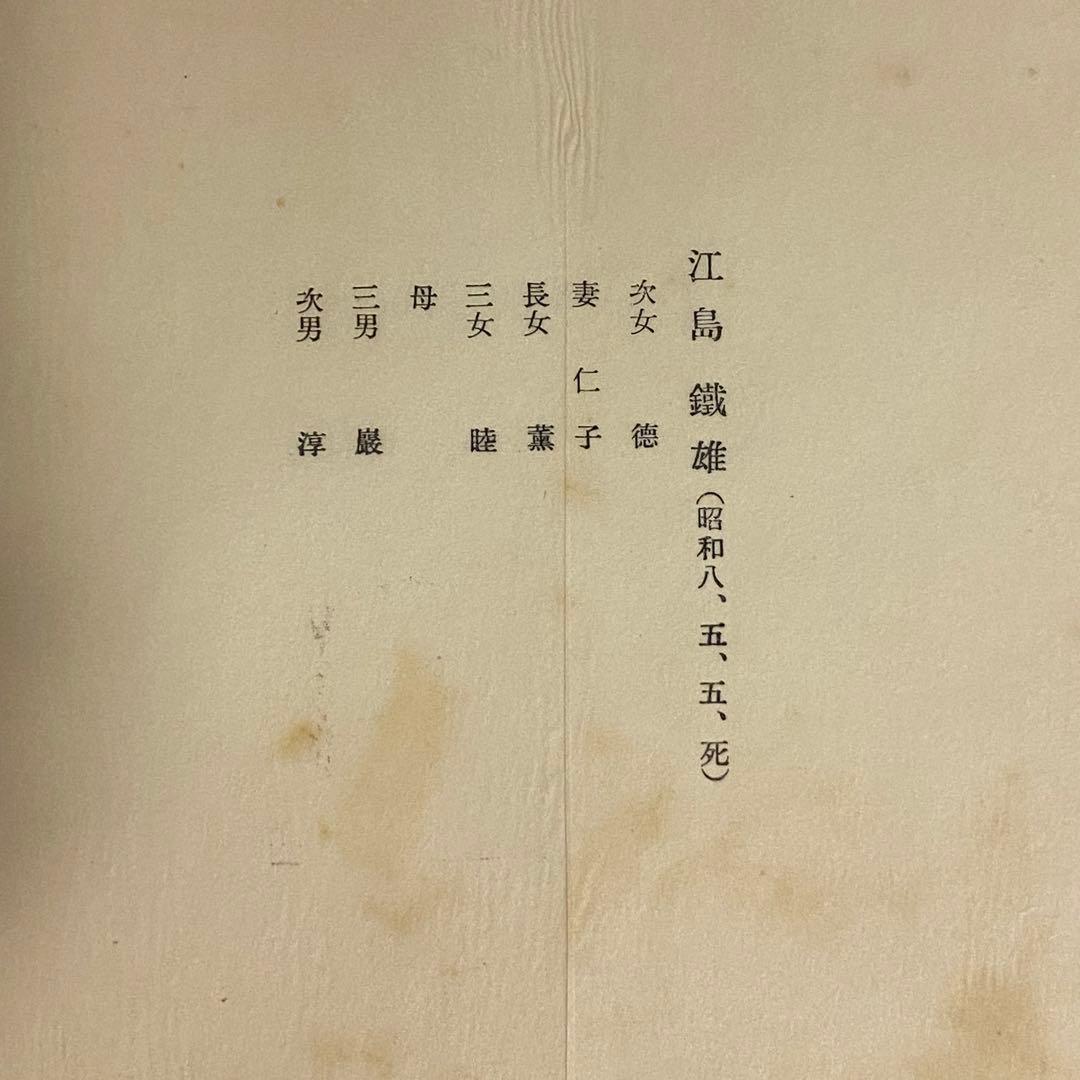 江島 鐵雄(昭和八、五、五、死)
次女 德
妻 仁子
長女 薫
三女 睦
母
三男 巖
次男 淳